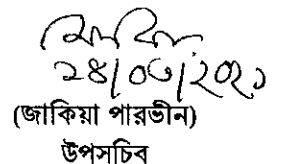 ২৪/০৩/২০২১
(জাকিয়া পারভীন)
উপসচিব